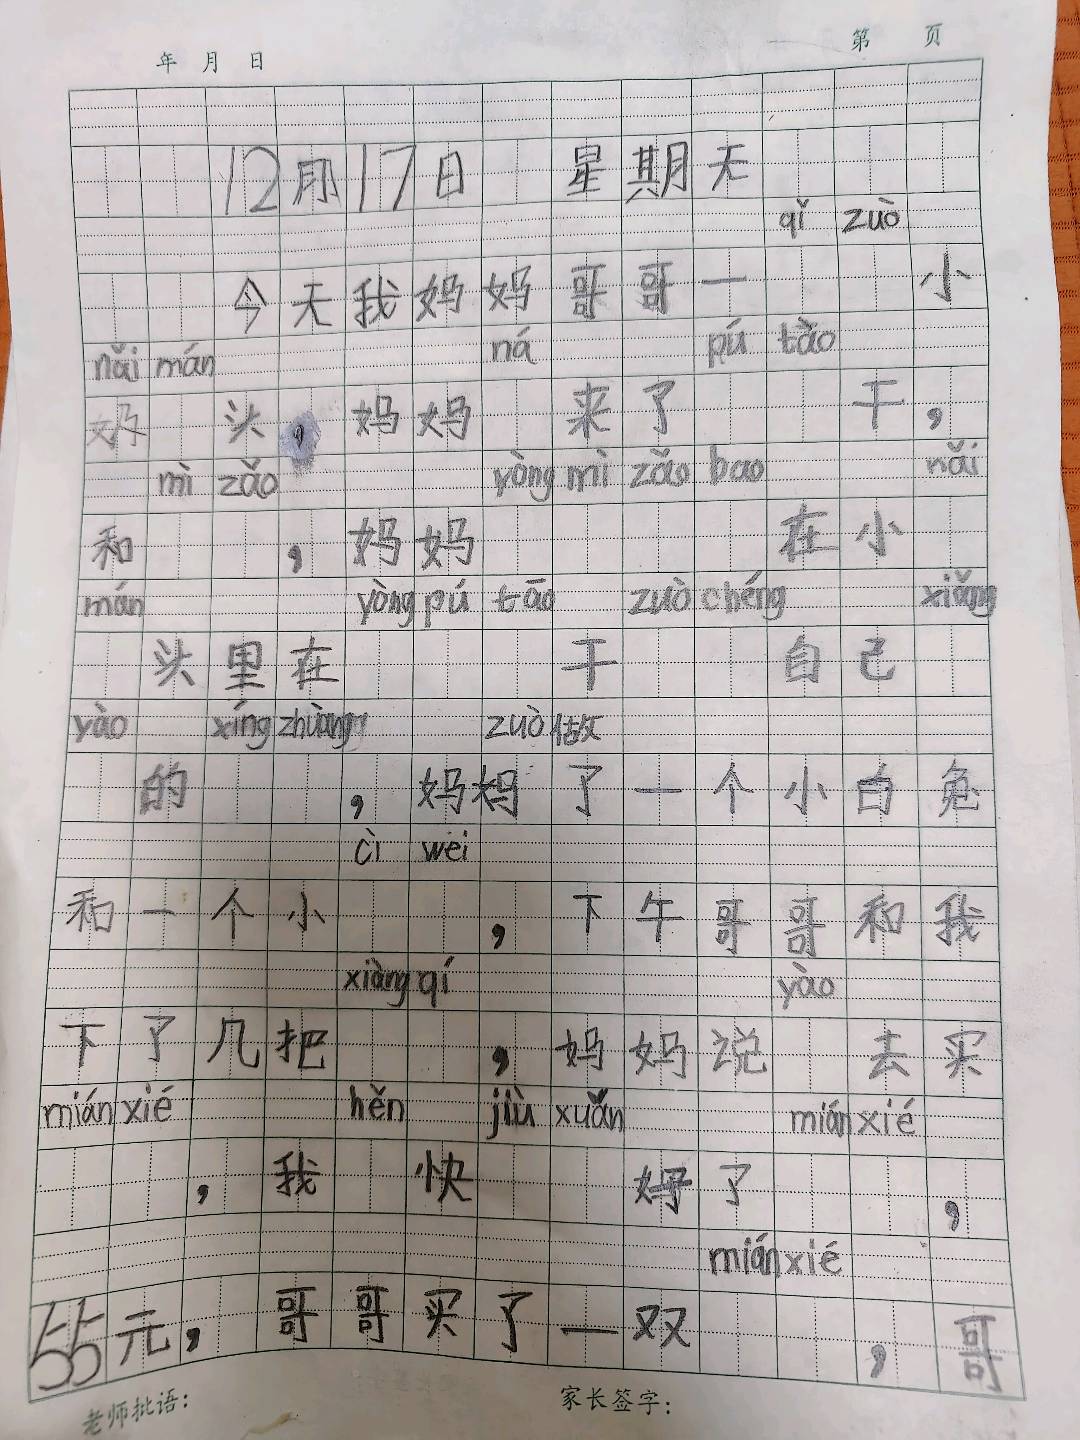 年 月 日 第 页
12月17日 星期天
qǐ zuò
今天我妈妈哥哥一 小
nǎi mán ná pú tāo
奶 头，妈妈 来了 干，
mì zǎo yòng mì zǎo bao nǎi
和 ，妈妈 在小
mán yòng pú tāo zuò chéng xiǎng
头里在 干 自己
yào xíng zhuàng zuò
的 ，妈妈 了一个小白兔
cì wei
和一个小 ，下午哥哥和我
xiàng qí yào
下了几把 ，妈妈说 去买
mián xié hěn jiù xuǎn mián xié
，我 快 好了 ，
mián xié
55元，哥哥买了一双 ，哥
老师批语： 家长签字：